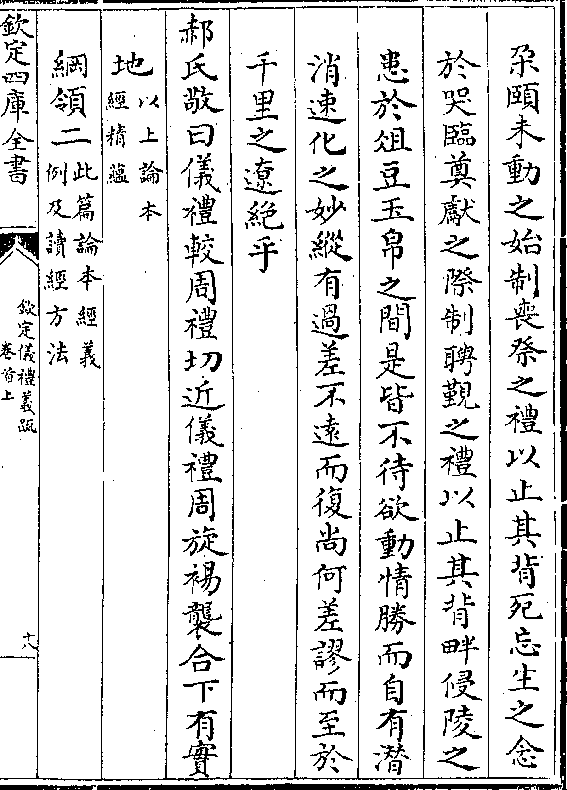 朶頤未動之始制喪祭之禮以止其背死忘生之念
於哭臨奠獻之際制聘覲之禮以止其背畔侵陵之
患於俎豆玉帛之間是皆不待欲動情勝而自有潛
消速化之妙縱有過差不遠而復尚何差謬而至於
千里之遼絶乎
郝氏敬曰儀禮較周禮切近儀禮周旋裼襲合下有實
地以上論本
經精藴
綱領二此篇論本經義
例及讀經方法
欽定四庫全書
欽定儀禮義疏
卷首上
十八